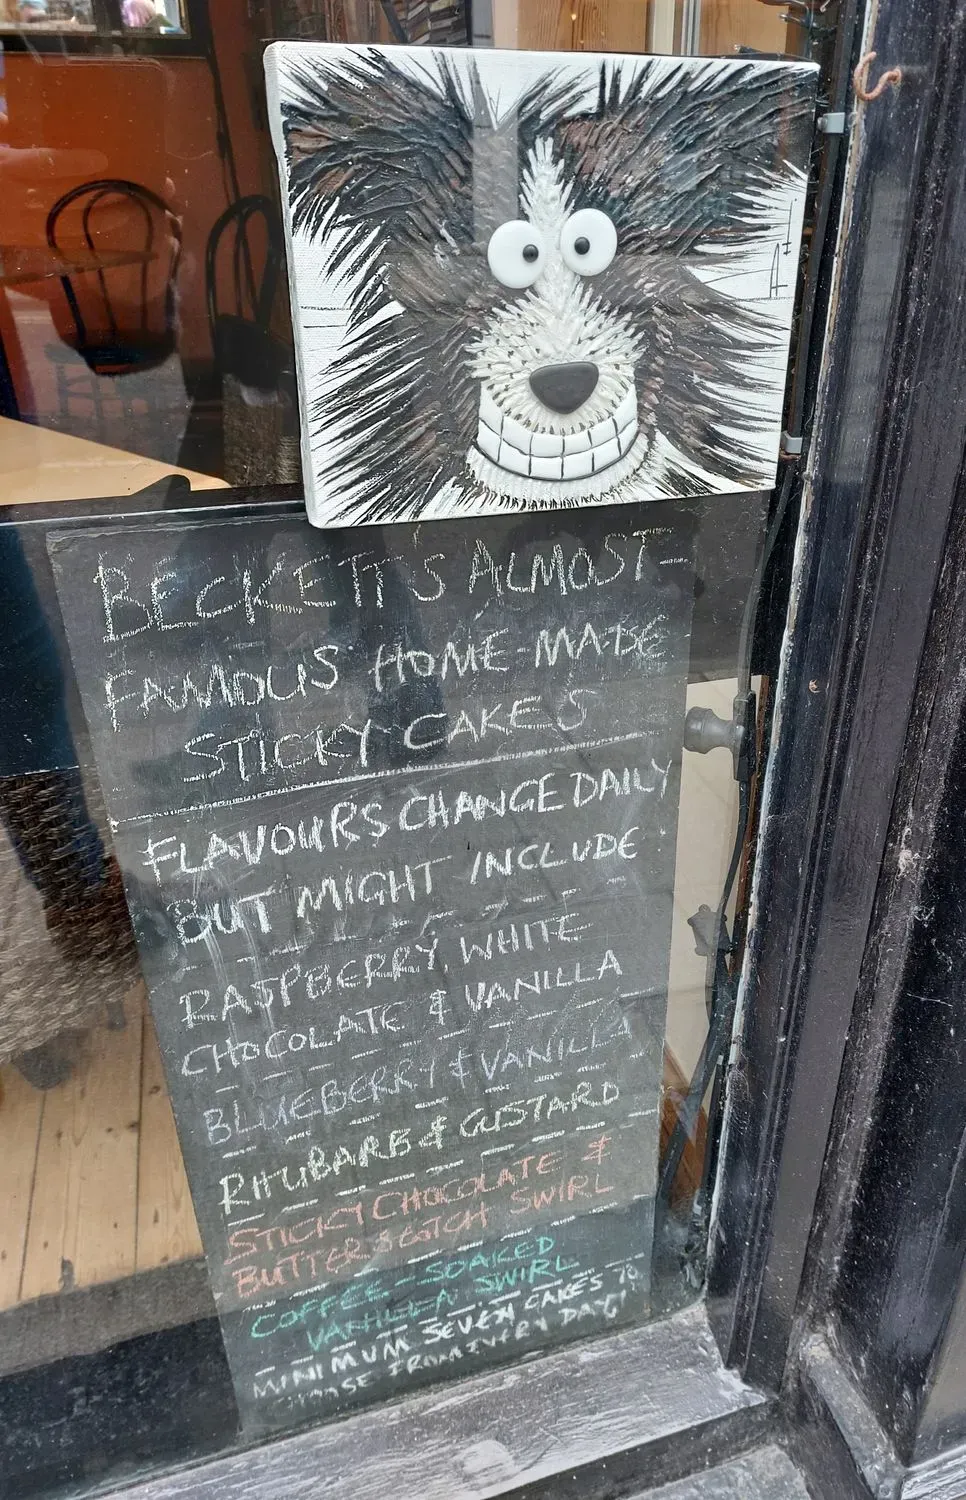 BECKETT'S ALMOST-
FAMOUS HOME-MADE
STICKY CAKES
FLAVOURS CHANGE DAILY
BUT MIGHT INCLUDE:
RASPBERRY WHITE
CHOCOLATE & VANILLA
BLUEBERRY & VANILLA
RHUBARB & CUSTARD
STICKY CHOCOLATE &
BUTTERSCOTCH SWIRL
COFFEE-SOAKED
SWIRL
MINIMUM SEVEN CAKES TO
CHOOSE FROM EVERY DAY!